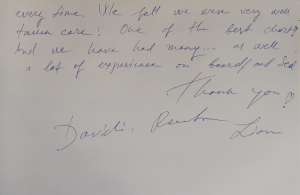 every time. We felt we were very well
taken care! One of the best charters
And we have had many... as well
a lot of experience on board and Sea
Thank you ♡
Lion